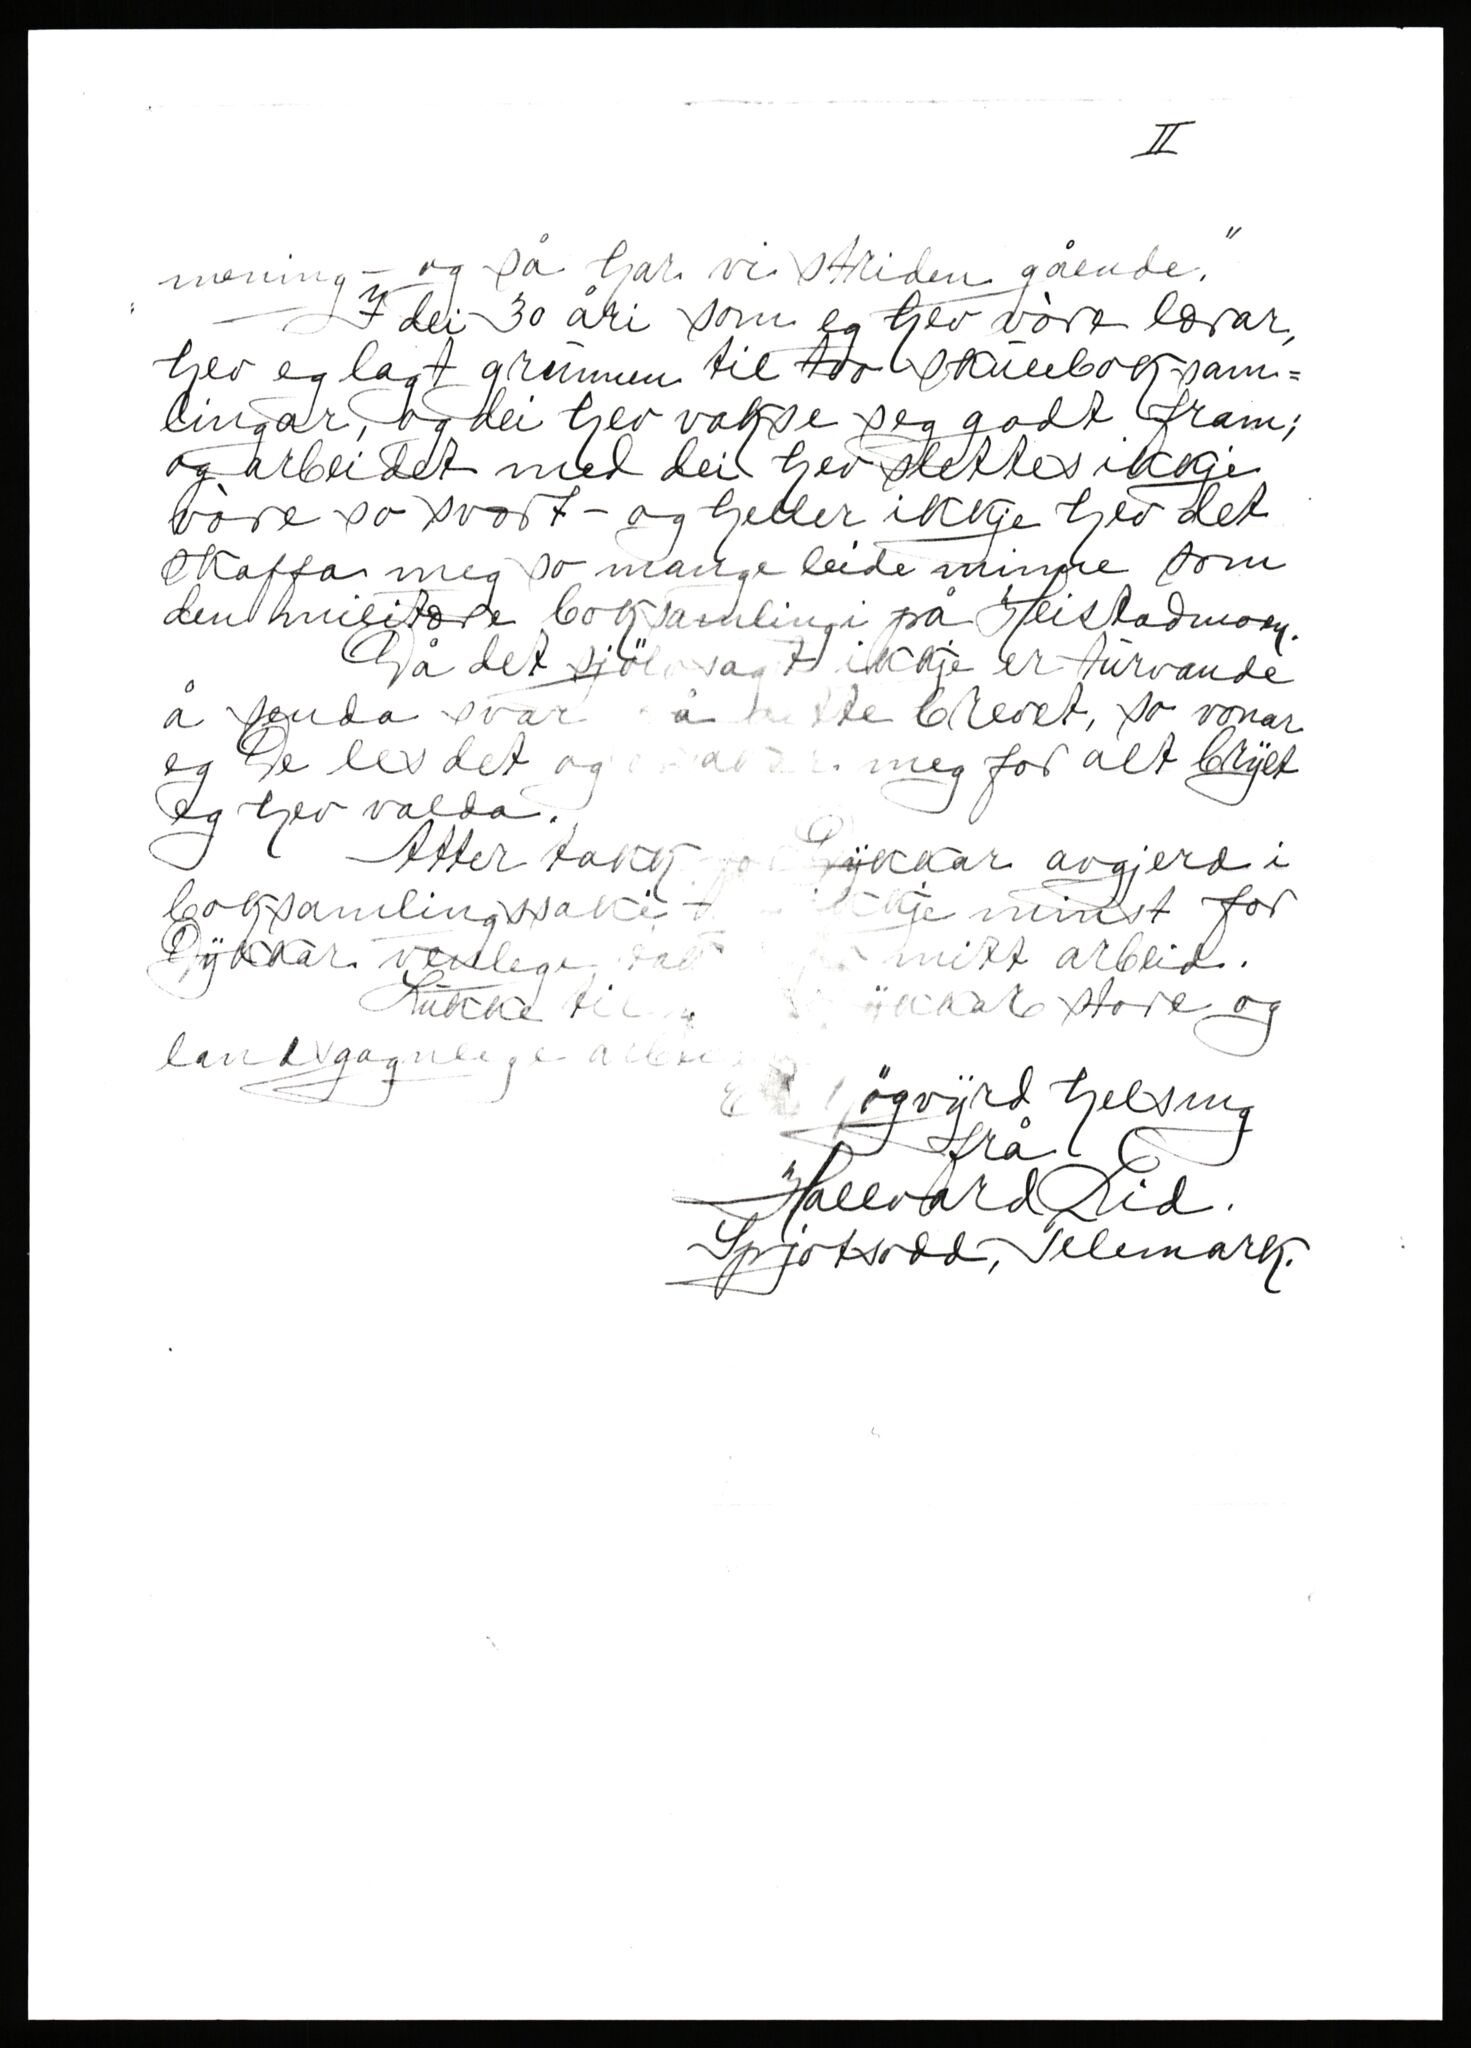 II
mening – og så har vi striden gående."
I dei 30 åri som eg hev vòre lærar,
hev eg lagt grunnen til tvo skulebok-sam=
lingar, og dei hev vakse seg godt fram;
og arbeidet med dei hev slettes ikkje
vòre so svært – og heller ikkje hev det
skaffa meg so mange leide minne som
den militære boksamlingi på Heistadmoen.
Då det sjölvsagt ikkje er turvande
å senda svar på dette brevet, so vonar
eg De les det og orsakar meg for alt bryet
eg hev valda.
Atter takk for Dykkar avgjerd i
boksamlingssaki – ikkje minst for
Dykkar venlege mitt arbeid.
Lukke til Dykkar store og
landsgagnlege arbeid
högvyrd helsing
frå
Hallvard Eid.
Spjotsodd, Telemark.